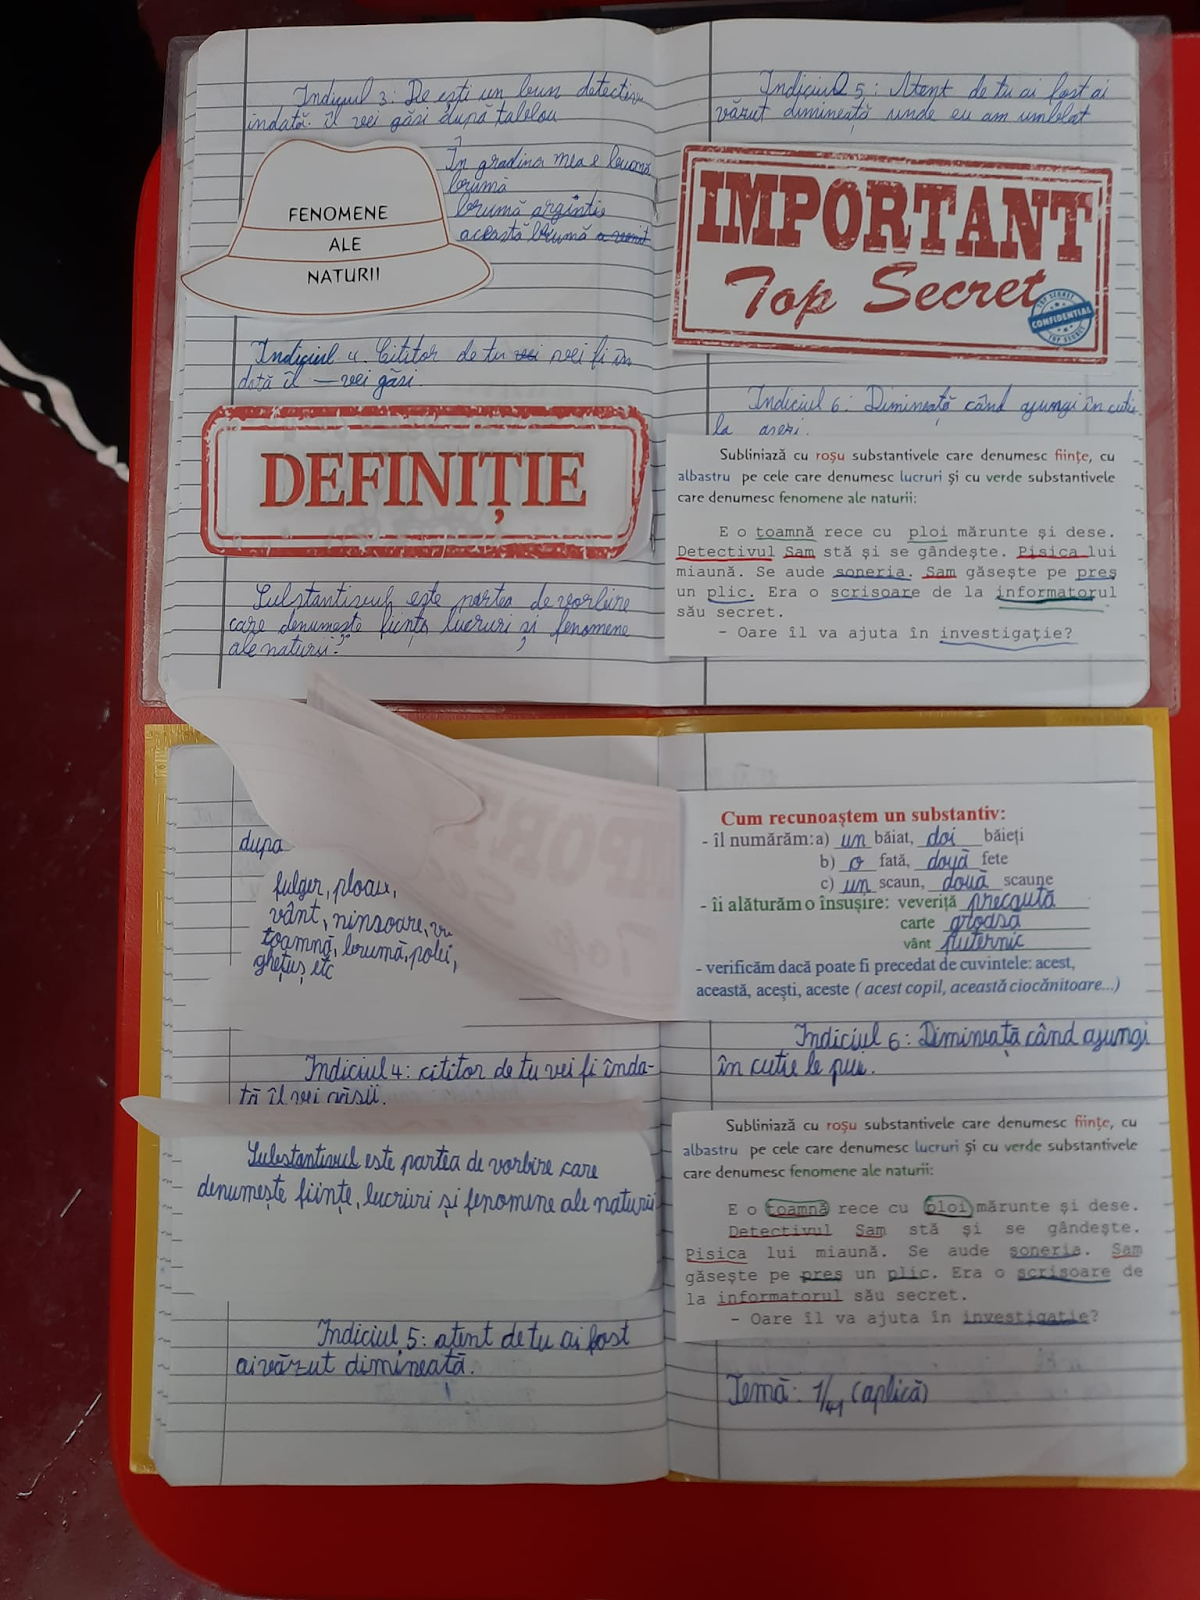 Indiciul 3: De ești un bun detectiv
îndată îl vei găsi după tablou
În gradina mea e brumă
brumă
brumă argintie
această brumă a venit
FENOMENE
ALE
NATURII
Indiciul 4. Cititor de tu vei fi în
dată îl — vei găsi.
DEFINIȚIE
Substantivul este partea de vorbire
care denumește ființe lucruri și fenomene
ale naturii.
Indiciul 5: Atent de tu ai fost ai
văzut dimineață unde eu am umblat
IMPORTANT
Top Secret
TOP SECRET
CONFIDENTIAL
TOP SECRET
Indiciul 6: Dimineață când ajungi în cutie
la
Subliniază cu roşu substantivele care denumesc fiinţe, cu
albastru pe cele care denumesc lucruri şi cu verde substantivele
care denumesc fenomene ale naturii:
E o toamnă rece cu ploi mărunte şi dese.
Detectivul Sam stă şi se gândeşte. Pisica lui
miaună. Se aude soneria. Sam găseşte pe preş
un plic. Era o scrisoare de la informatorul
său secret.
- Oare îl va ajuta în investigaţie?
dupa
fulger, ploaie,
vânt, ninsoare,
toamnă, brumă, polei,
ghețuș, etc
Indiciul 4: cititor de tu vei fi înda-
tă îl vei găsii.
Substantivul este partea de vorbire care
denumește ființe, lucruri și fenomene ale naturii
Indiciul 5: atent de tu ai fost
ai văzut dimineață.
Cum recunoaştem un substantiv:
- îl numărăm: a) un băiat, doi băieţi
b) o fată, două fete
c) un scaun, două scaune
- îi alăturăm o însuşire: veveriţă precaută
carte groasă
vânt puternic
- verificăm dacă poate fi precedat de cuvintele: acest,
această, aceşti, aceste ( acest copil, această ciocănitoare...)
Indiciul 6: Dimineață când ajungi
în cutie le pui.
Subliniază cu roşu substantivele care denumesc fiinţe, cu
albastru pe cele care denumesc lucruri şi cu verde substantivele
care denumesc fenomene ale naturii:
E o toamnă rece cu ploi mărunte şi dese.
Detectivul Sam stă şi se gândeşte.
Pisica lui miaună. Se aude soneria. Sam
găseşte pe preş un plic. Era o scrisoare de
la informatorul său secret.
- Oare îl va ajuta în investigaţie?
Temă: 1/41 (aplică)